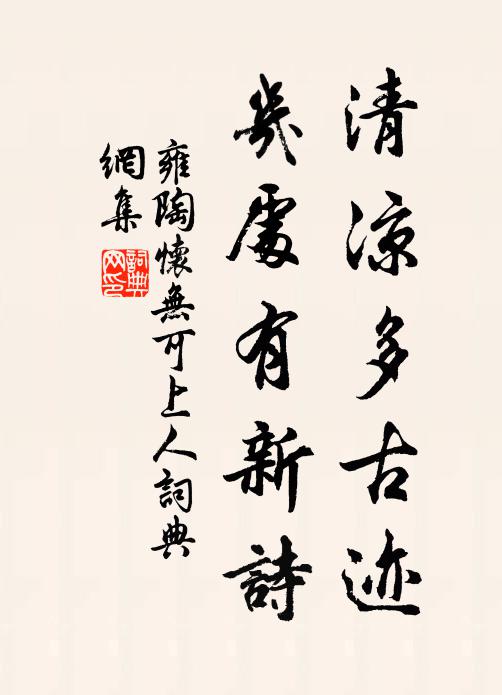 清凉多古迹
幾處有新詩
雍陶懷無可上人詞典
網集
詞典
网印